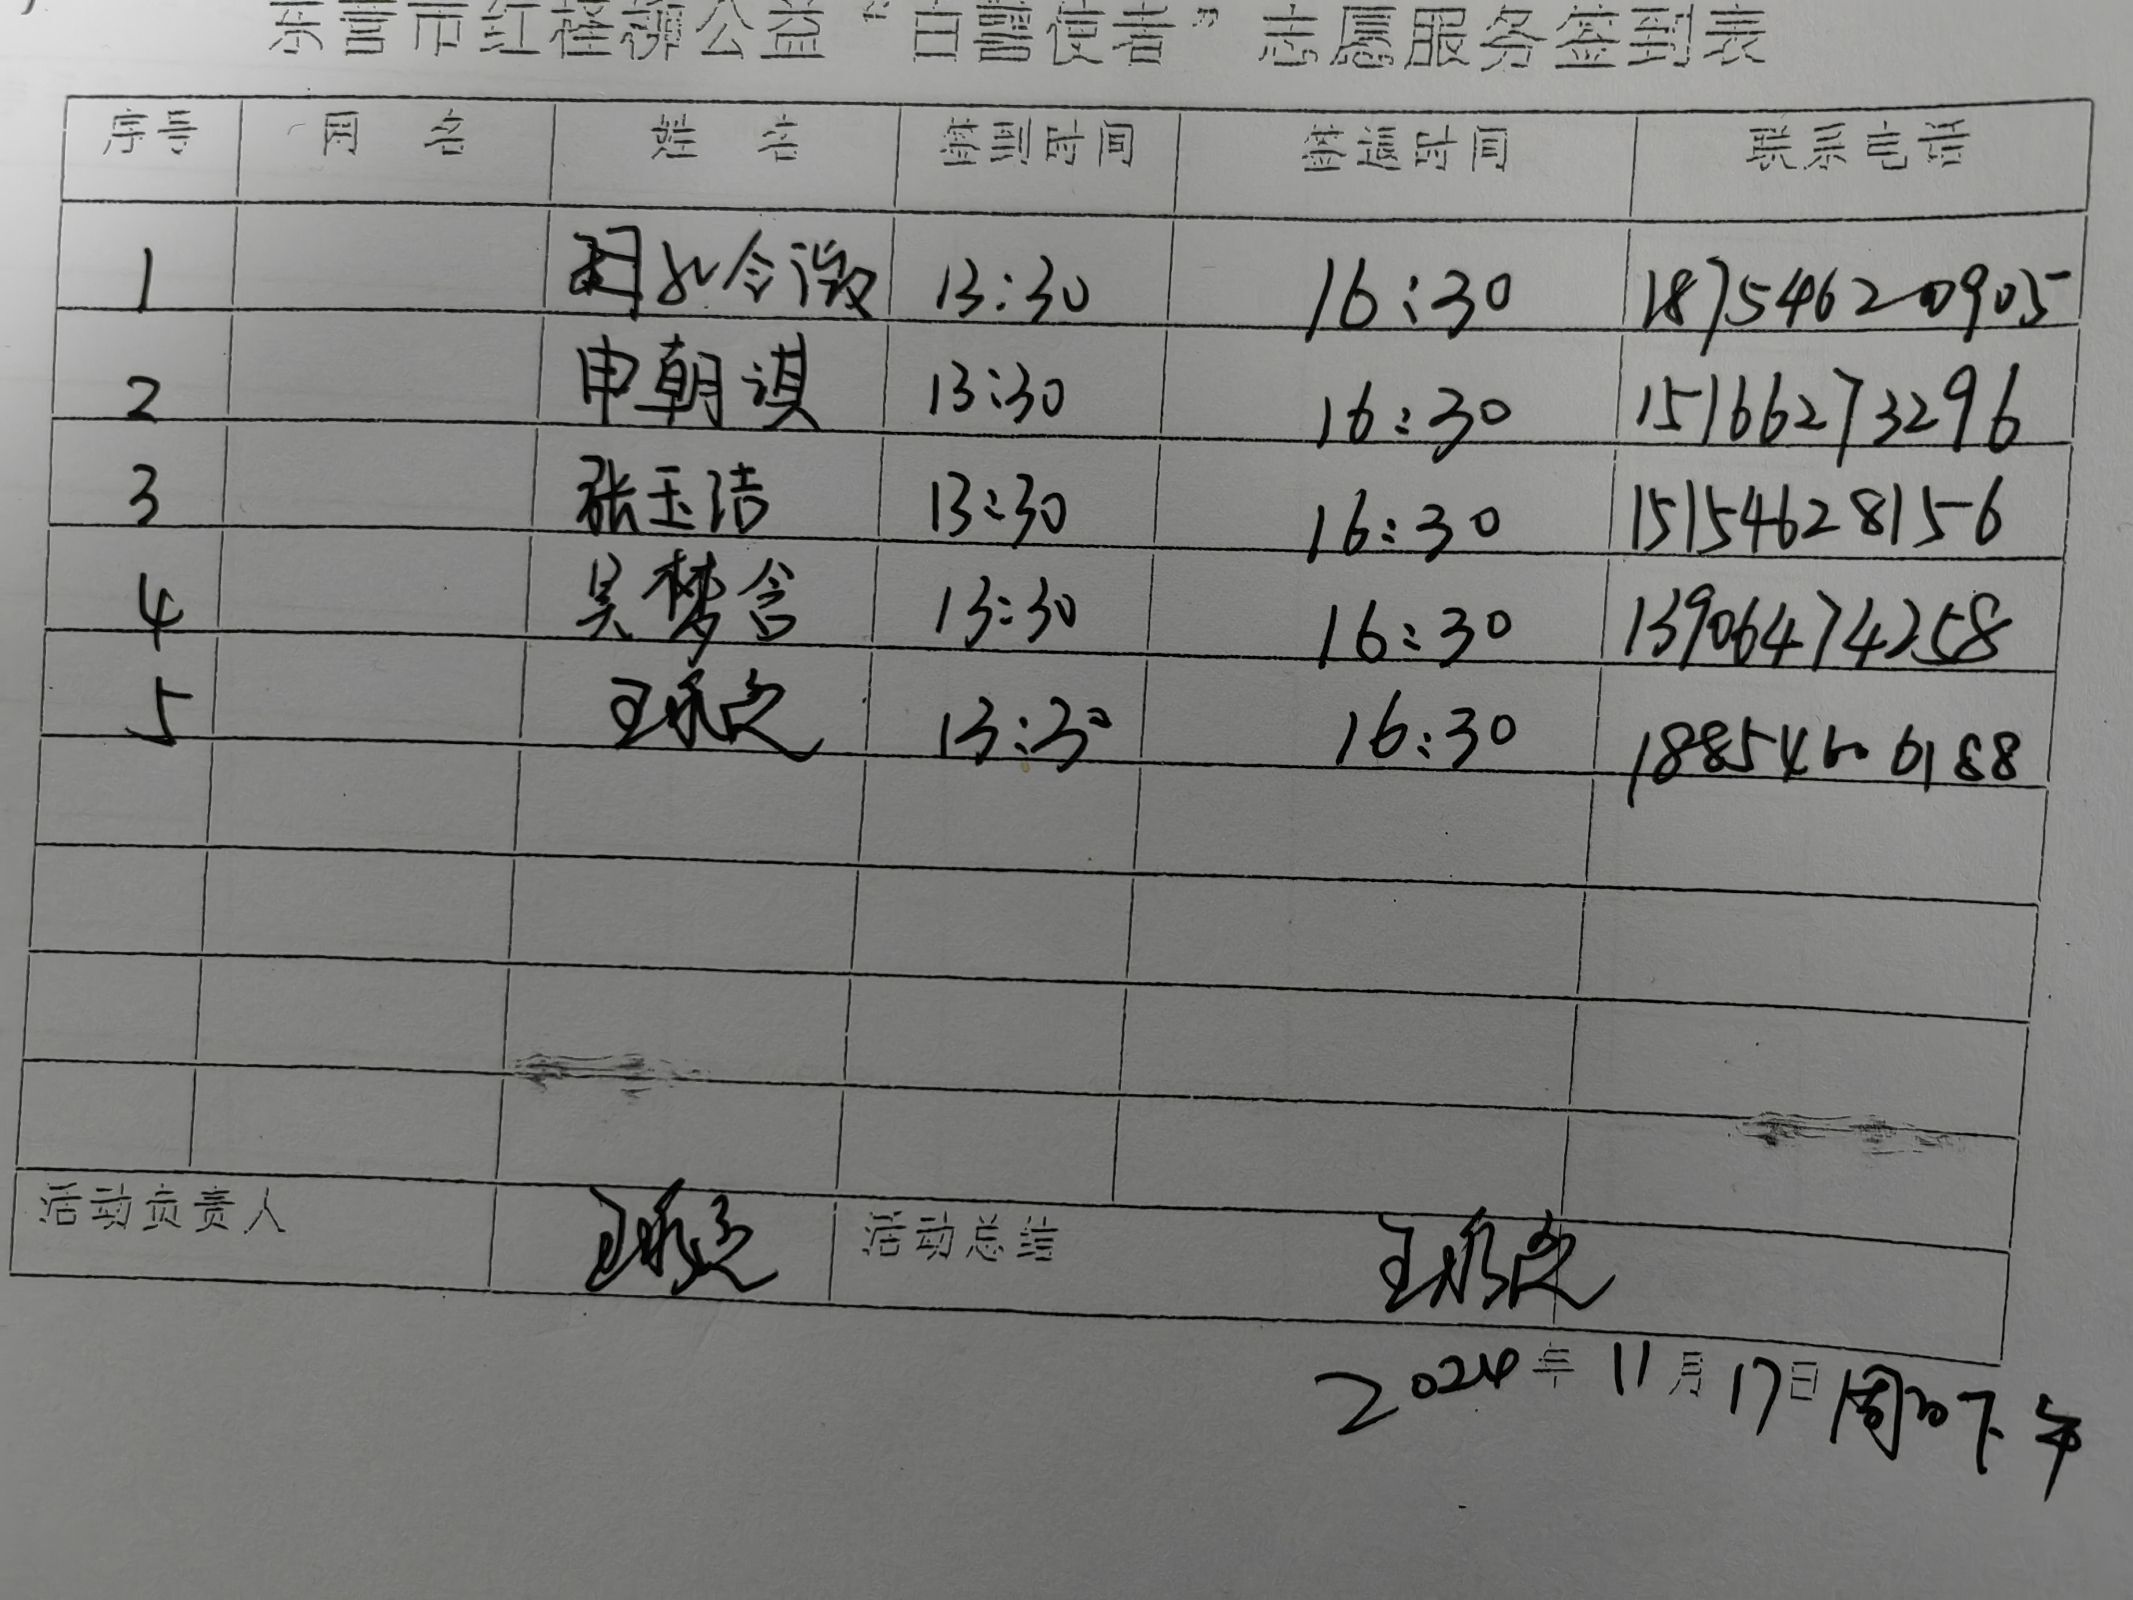 东营市红柽柳公益“白鹭使者”志愿服务签到表
序号 网名 姓名 签到时间 签退时间 联系电话
1 13:30 16:30 18754620905
2 申朝淇 13:30 16:30 15166273296
3 张玉洁 13:30 16:30 15154628156
4 吴梦含 13:30 16:30 13906474258
5 13:30 16:30 18854606188
活动负责人 活动总结
2024年11月17日周日下午